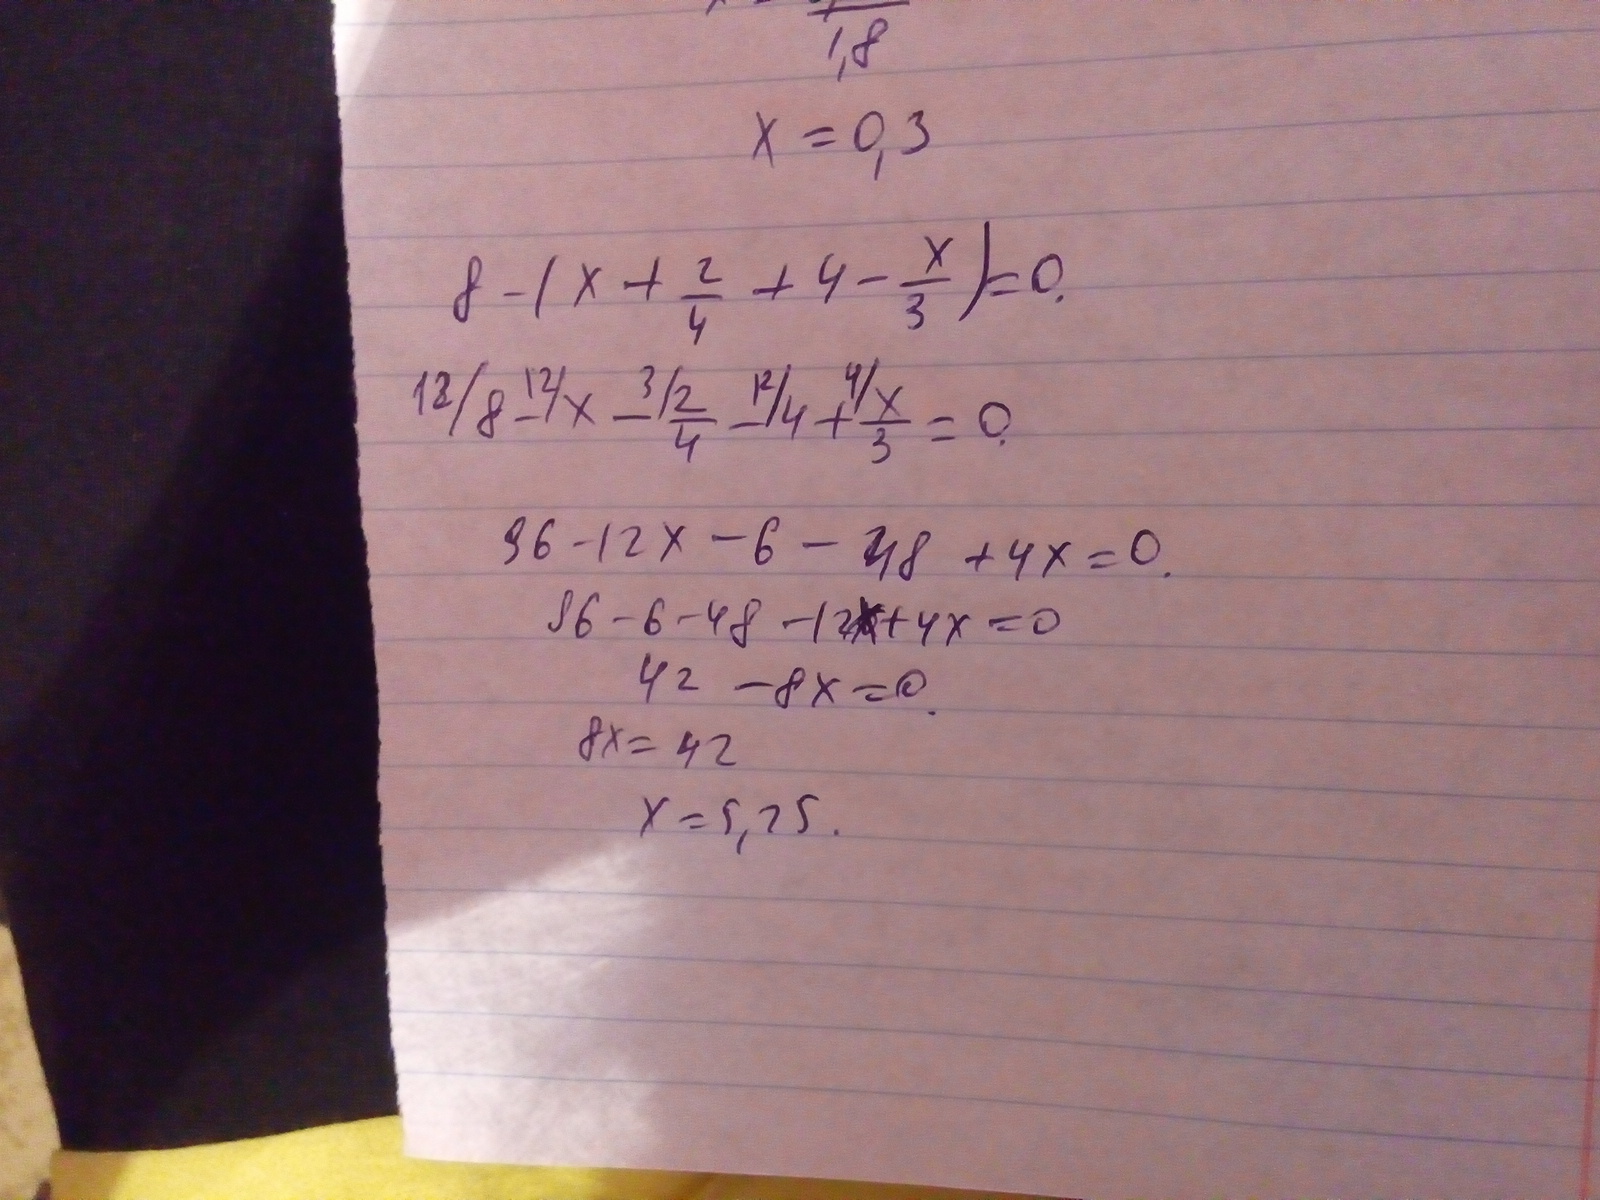 1,8
x = 0,3
8 - (x + 2/4 + 4 - x/3) = 0.
12/8 - 12/x - 3/2/4 - 12/4 + 4/x/3 = 0.
96 - 12x - 6 - 48 + 4x = 0.
96 - 6 - 48 - 12x + 4x = 0
42 - 8x = 0.
8x = 42
x = 5,25.